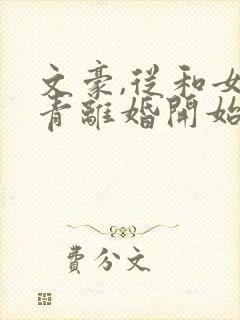 文豪,從和女
青離婚開始
費公文